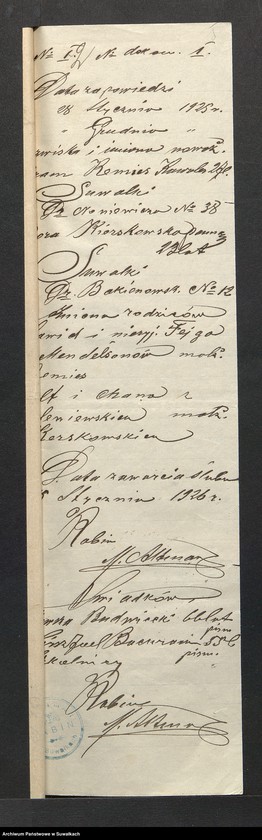 № I. / № dokum. 1.
Data zapowiedzi
28 Stycznia 1925 r.
" Grudnia "
zwiska i imiona nowoż.
Remies Kawaler 27 l.
Suwałki
Dr. Noniewicza № 38
Kierskowska Panna
23 lat
Suwałki
Dr. Bakienowsk. № 12
Imiona rodziców
awid i niezyj. Fejga
Mendelsonów małż.
Remies
i Chana z
leniewskich małż.
Kerskowskich
Data zawarcia ślubu
Stycznia 1926 r.
Rabin
M. Altman
Świadków
Budwiecki 66 lat
pism.
55 l
pism.
Rabin
M. Altman
Archiwum Państwowe w Suwałkach